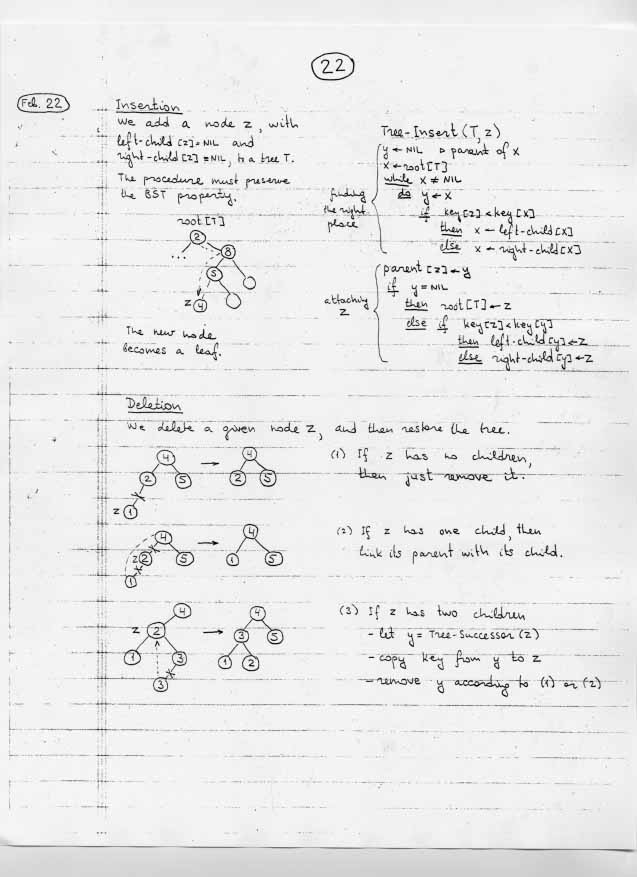 22
Feb. 22
Insertion
We add a node z, with
left-child [z]=NIL and
right-child [z]=NIL, to a tree T.
The procedure must preserve
the BST property.
root[T]
2
8
...
5
z 4
The new node
becomes a leaf.
Tree-Insert (T, z)
finding
the right
place
y ← NIL ▷ parent of x
x ← root[T]
while x ≠ NIL
do y ← x
if key[z] < key[x]
then x ← left-child[x]
else x ← right-child[x]
attaching
z
parent [z] ← y
if y = NIL
then root[T] ← z
else if key[z] < key[y]
then left-child[y] ← z
else right-child[y] ← z
Deletion
We delete a given node z, and then restore the tree.
4 → 4
2 5 2 5
z 1
(1) If z has no children,
then just remove it.
4 → 4
z 2 5 1 5
1
(2) If z has one child, then
link its parent with its child.
4 4
z 2 → 3 5
1 3 1 2
3
(3) If z has two children
- let y = Tree-Successor (z)
- copy key from y to z
- remove y according to (1) or (2)